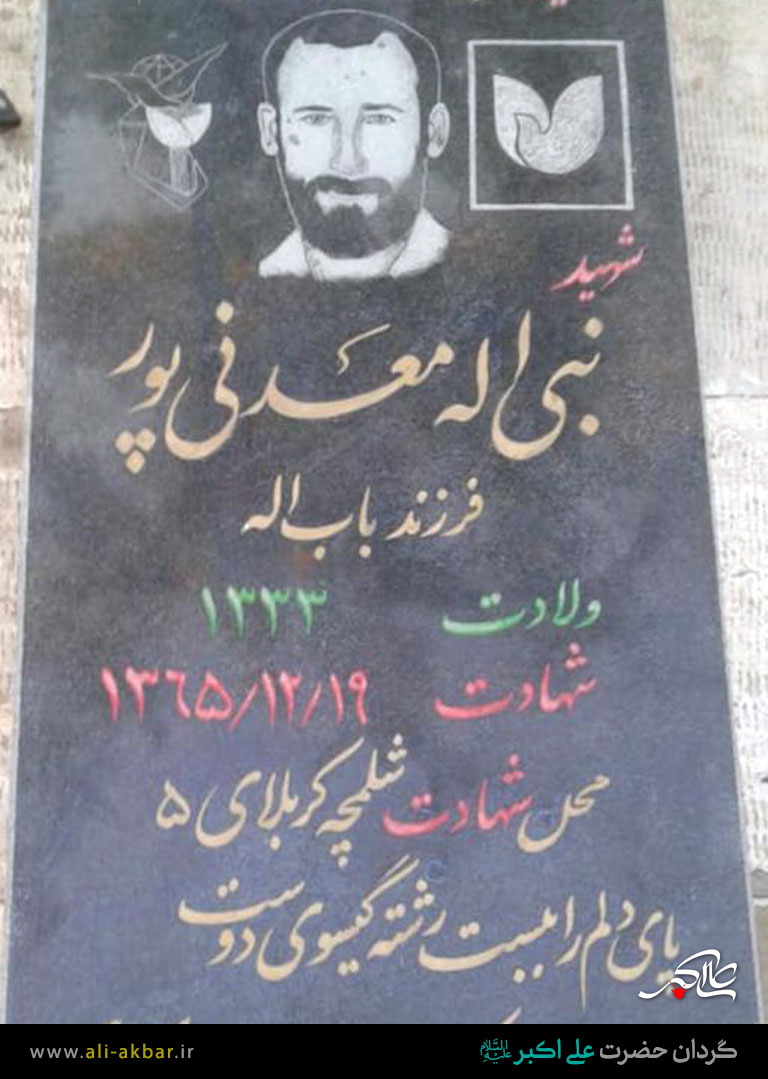 شهید
نبی اله معدنی پور
فرزند باب اله
ولادت ۱۳۳۳
شهادت ۱۳۶۵/۱۲/۱۹
محل شهادت شلمچه کربلای ۵
پای دلم را ببست رشته گیسوی دوست
علی اکبر
www.ali-akbar.ir
گردان حضرت علی اکبر علیه السلام